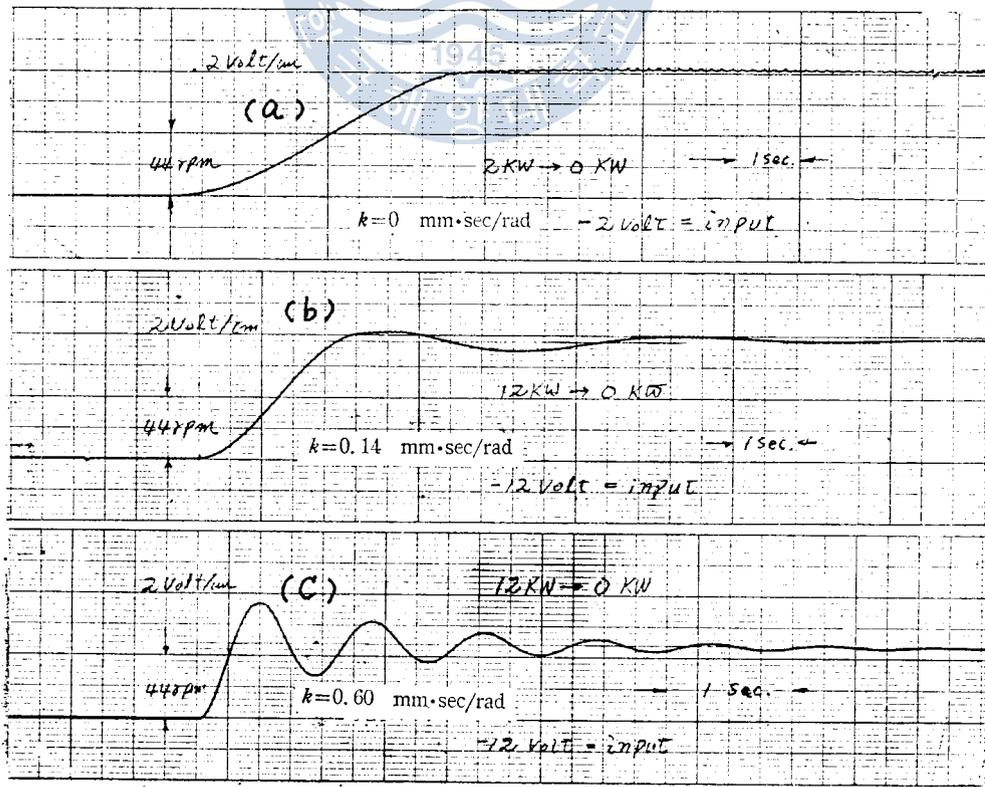 1945
2 Volt/cm
(a)
44 rpm
2 KW → 0 KW
1 sec.
k=0 mm•sec/rad
-2 volt = input
2 Volt/cm
(b)
12 KW → 0 KW
44 rpm
k=0.14 mm•sec/rad
1 sec.
-12 Volt = input
2 Volt/cm
(C)
12 KW → 0 KW
44 rpm
k=0.60 mm•sec/rad
1 sec.
-12 Volt = input